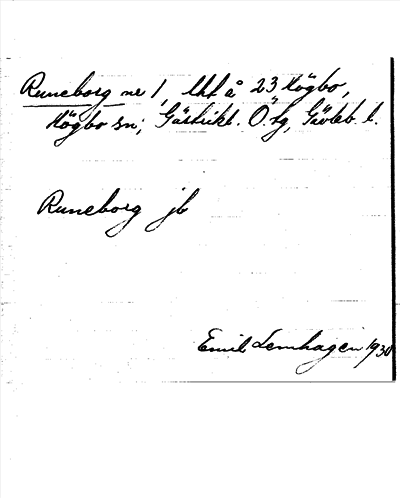 Runeborg nr 1, lht å 23 Högbo,
Högbo sn; Gästrikl. Ö. tg, Gävleb. l.
Runeborg jb
Emil Lemhagen 1930